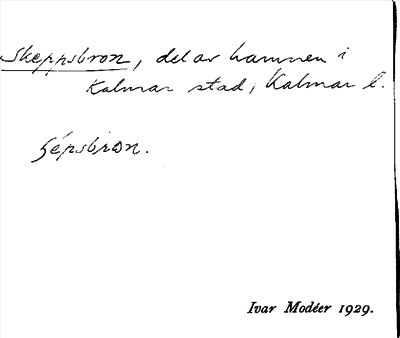 Skeppsbron, del av hamnen i
Kalmar stad, Kalmar l.
śépsbròn.
Ivar Modéer 1929.